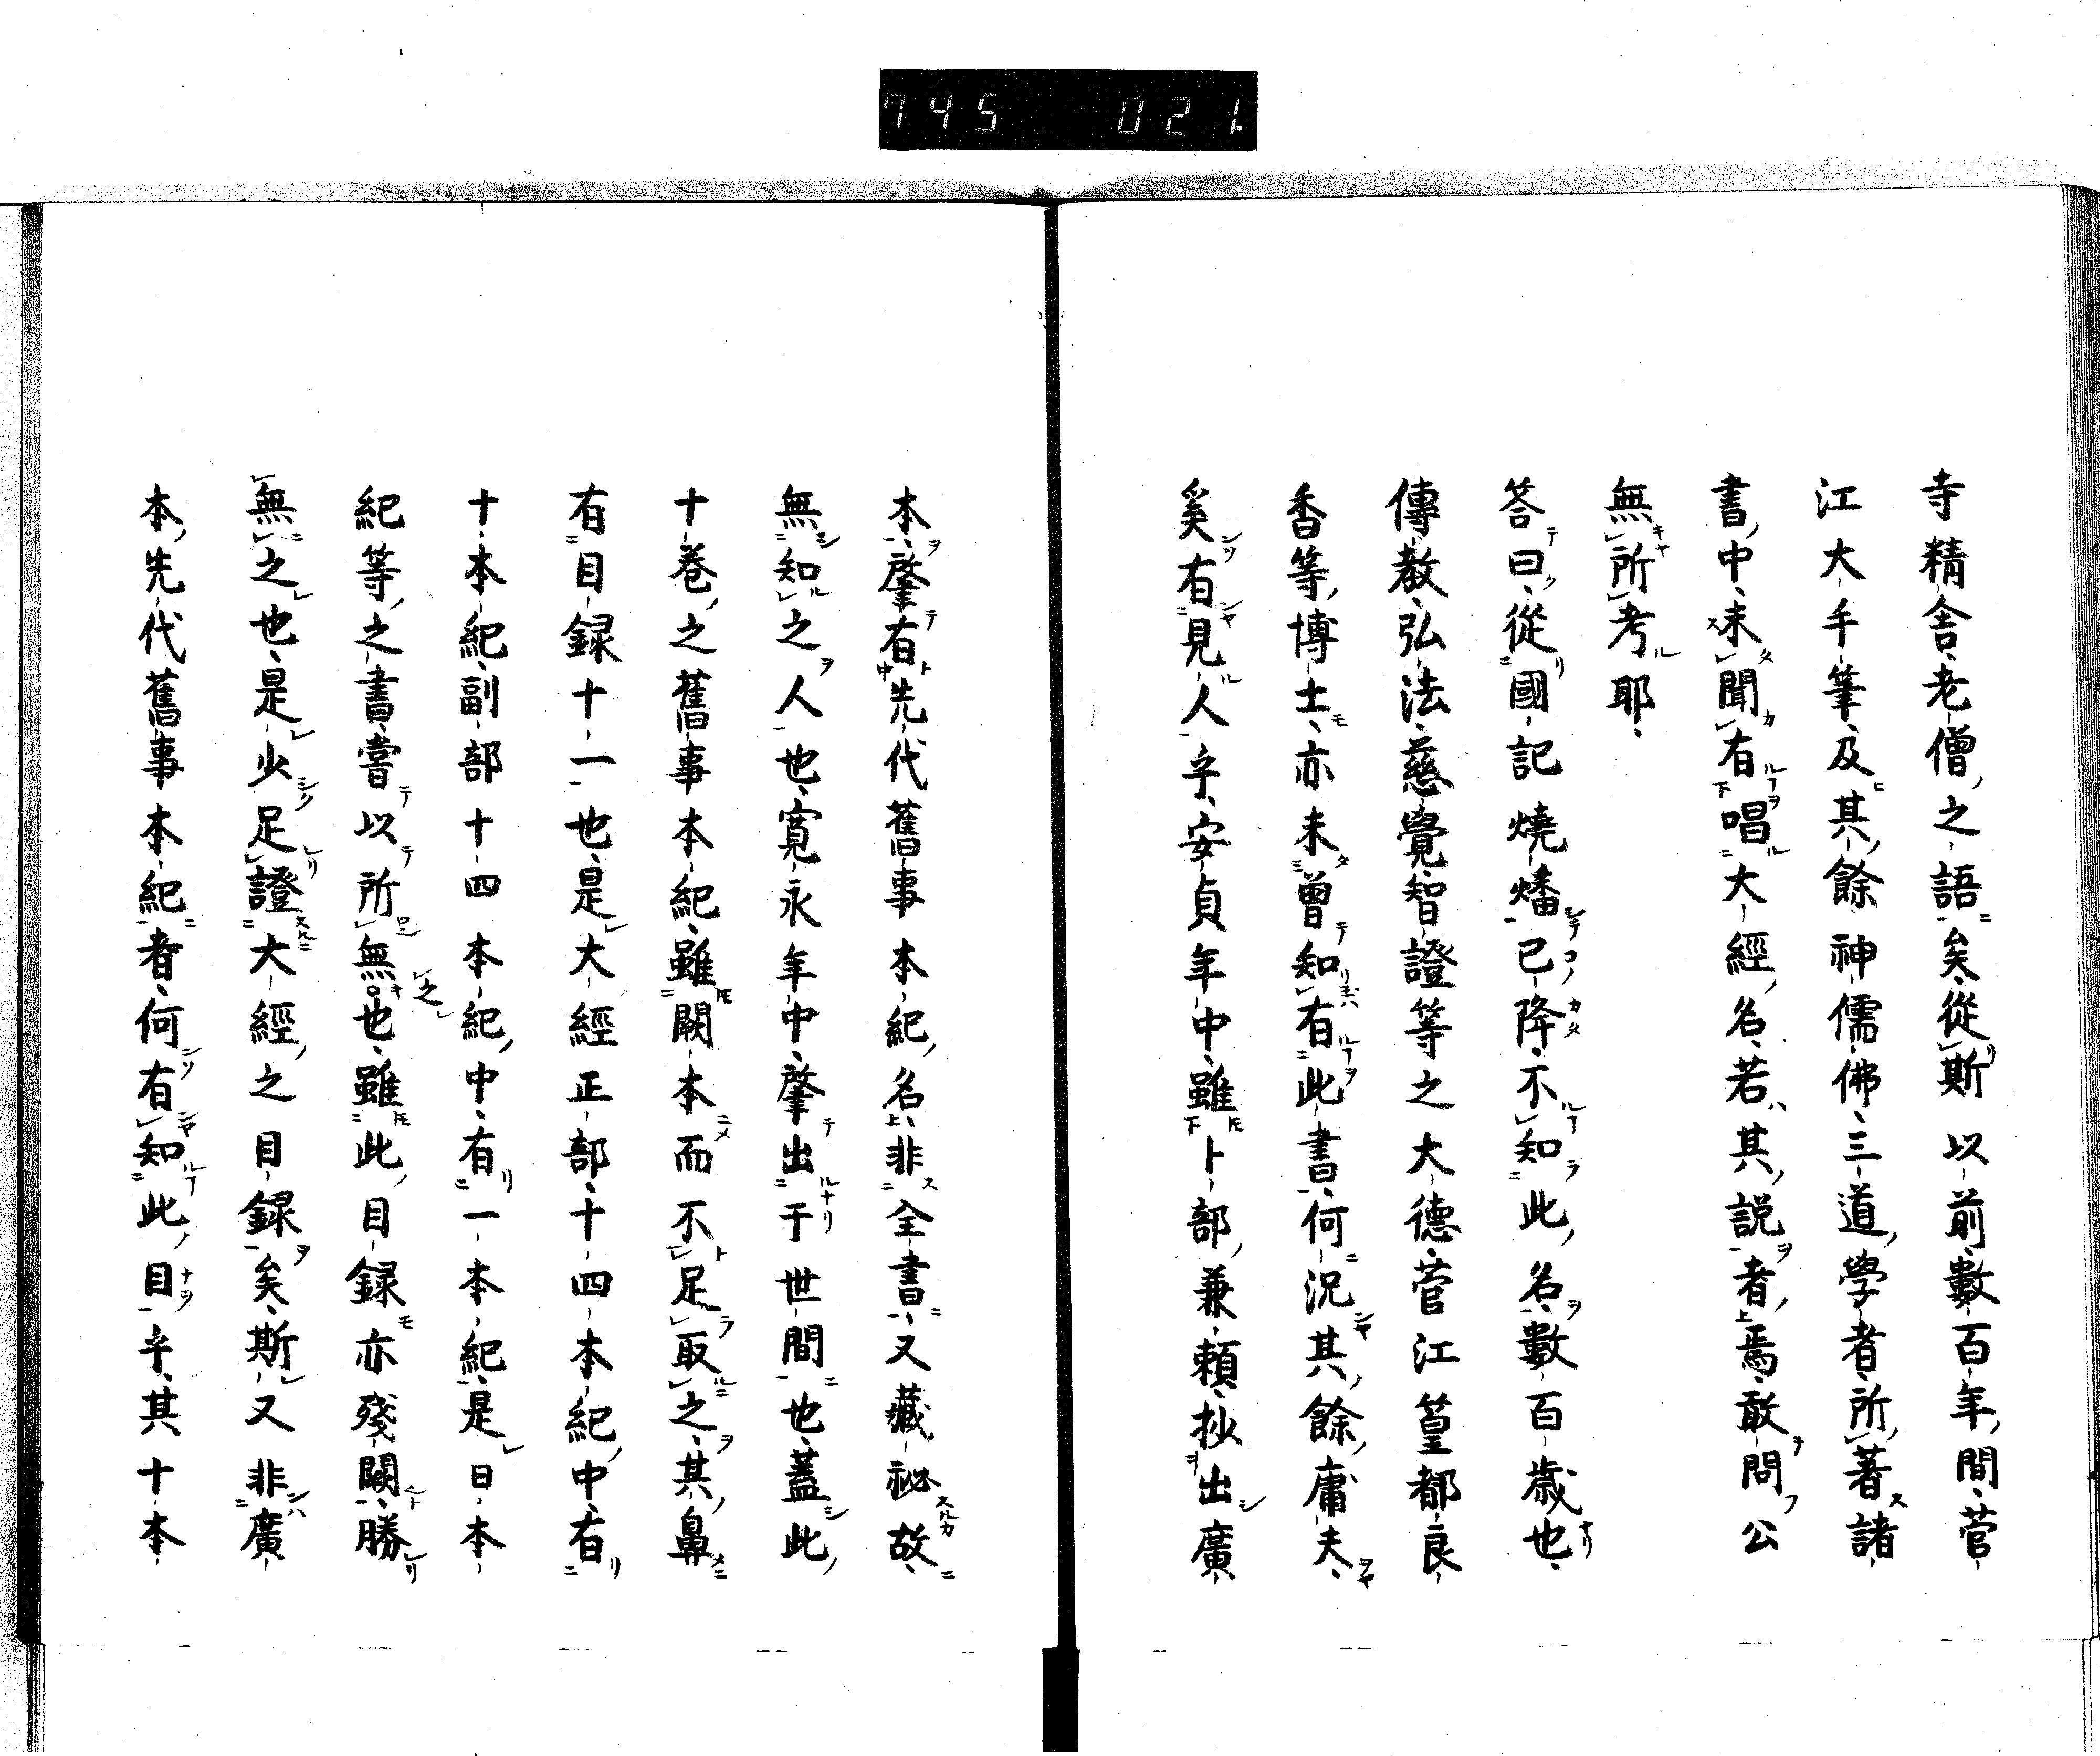 745 021.
寺精舎老僧之語矣從斯以前數百年間菅
江大手筆及其餘神儒佛三道學者所著諸
書中未聞有唱大經名若其説者焉敢問公
無所考耶
答曰從國記燒燔已降不知此名數百歳也
傳教弘法慈覺智證等之大德菅江篁都良
香等博士亦未曾知有此書何況其餘庸夫
奚有見人乎安貞年中雖卜部兼頼抄出廣
本肇有先代舊事本紀名非全書又藏祕故
無知之人也寛永年中肇出于世間也蓋此
十卷之舊事本紀雖闕本而不足取之其鼻
有目録十一也是大經正部十四本紀中有
十本紀副部十四本紀中有一本紀是日本
紀等之書嘗以所無之也雖此目録亦殘闕勝
無之也是少足證大經之目録矣斯又非廣
本先代舊事本紀者何有知此目乎其十本